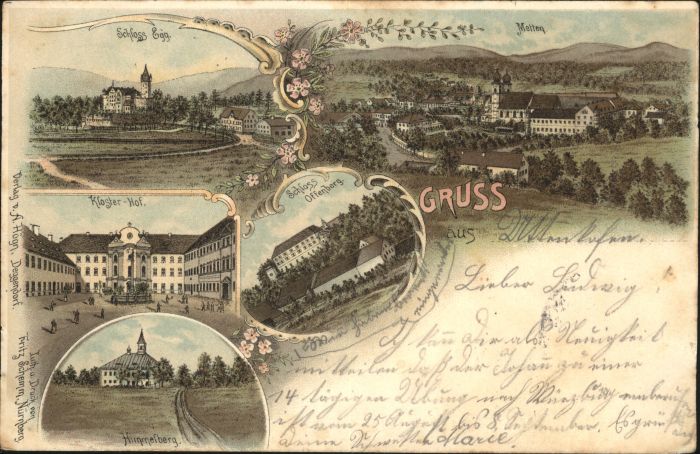 Schloss Egg.
Metten
Kloster-Hof.
Schloss
Offenberg.
GRUSS
AUS
Himmelberg.
Lieber Ludwig!
Ich kann dir als Neuigkeit
mitteilen daß der Johann zu einer
14 tägigen Übung nach Würzburg
ist vom 25 August bis 8. September. Es grüßt
deine Schwester Marie.
Verlag v. A. Högn, Deggendorf.
Lith. u. Druck von
Fritz Schardt, Nürnberg